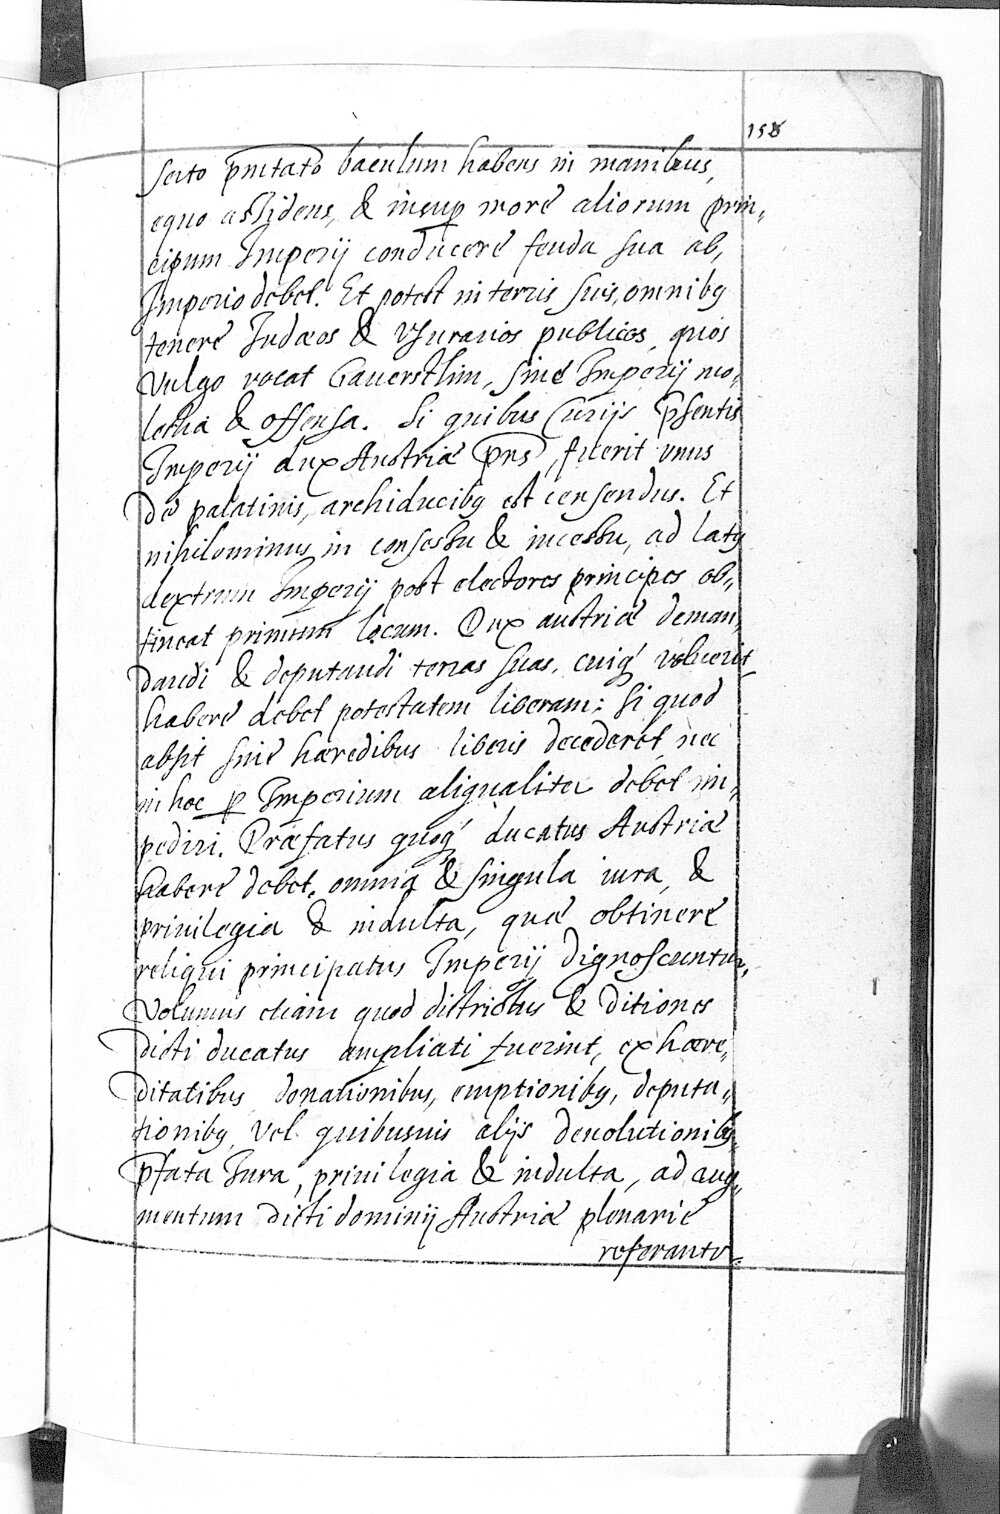 158
serto pntato baculum habens in manibus,
equo assidens, & insup more aliorum prin,
cipum Imperij conducere feuda sua ab,
Imperio debet. Et potest in terris suis, omnibꝯ
tenere Judæos & Vsurarios publicos, quos
Vulgo vocat Gauersthin, sine Imperij mo,
lestia & offensa. Si quibus Curijs p̄sentis
Imperij dux Austriæ p̄ns, fuerit vnus
de palatinis, archiducibꝯ est censendus. Et
nihilominus in consessu & incessu, ad latꝯ
dextrum Imperij post electores principes ob,
tineat primum locum. Dux austriæ deman,
dandi & deputandi terras suas, cuiq́ voluerit,
habere debet potestatem liberam: si quod
absit sine hæredibus liberis decederet, nec
in hoc ꝑ Imperium aliqualiter debet im,
pediri. Præfatus quoq́ ducatus Austriæ
habere debet, omnia & singula iura, &
priuilegia & indulta, quæ obtinere
reliqui principatus Imperij dignoscuntur,
Volumus etiam quod districtus & ditiones
dicti ducatus ampliati fuerint, ex hære,
ditatibus donationibus, emptionibꝯ, deputa,
tionibꝯ vel quibusuis alijs deuolutionibꝯ,
p̄fata Iura, priuilegia & indulta, ad aug,
mentum dicti dominij Austriæ plenarie
referantr.